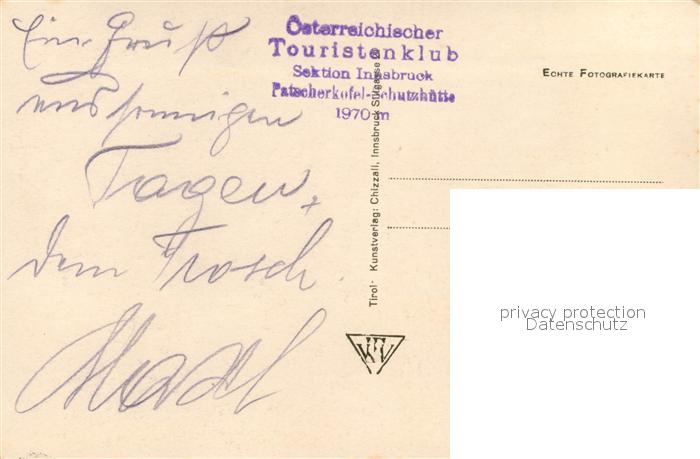 Ein Gruß
aus sonnigen
Tagen,
dem Frosch.
Österreichischer
Touristenklub
Sektion Innsbruck
Patscherkofel-Schutzhütte
1970 m
ECHTE FOTOGRAFIEKARTE
Tirol- Kunstverlag: Chizzali, Innsbruck
privacy protection
Datenschutz